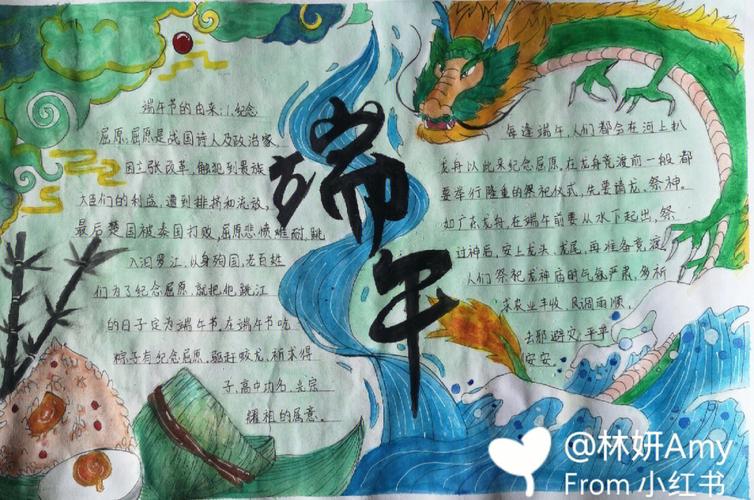 端午
端午节的由来:1.纪念
屈原.屈原是战国诗人及政治家,
因主张改革,触犯到贵族
大臣们的利益,遭到排挤和流放,
最后楚国被秦国打败,屈原悲愤难耐,跳
入汨罗江,以身殉国,老百姓
们为了纪念屈原,就把他跳江
的日子定为端午节.在端午节吃
粽子有纪念屈原,驱赶蛟龙,祈求得
子,高中功名,光宗
耀祖的寓意.
每逢端午,人们都会在河上扒
龙舟以此来纪念屈原,在龙舟竞渡前一般都
要举行隆重的祭祀仪式,先要请龙、祭神。
如广东龙舟,在端午前要从水下起出,祭
过神后,安上龙头、龙尾,再准备竞渡
人们祭祀龙神庙时气氛严肃,多祈
求农业丰收、风调雨顺、
去邪避灾、平平
安安.
@林妍Amy
From 小红书